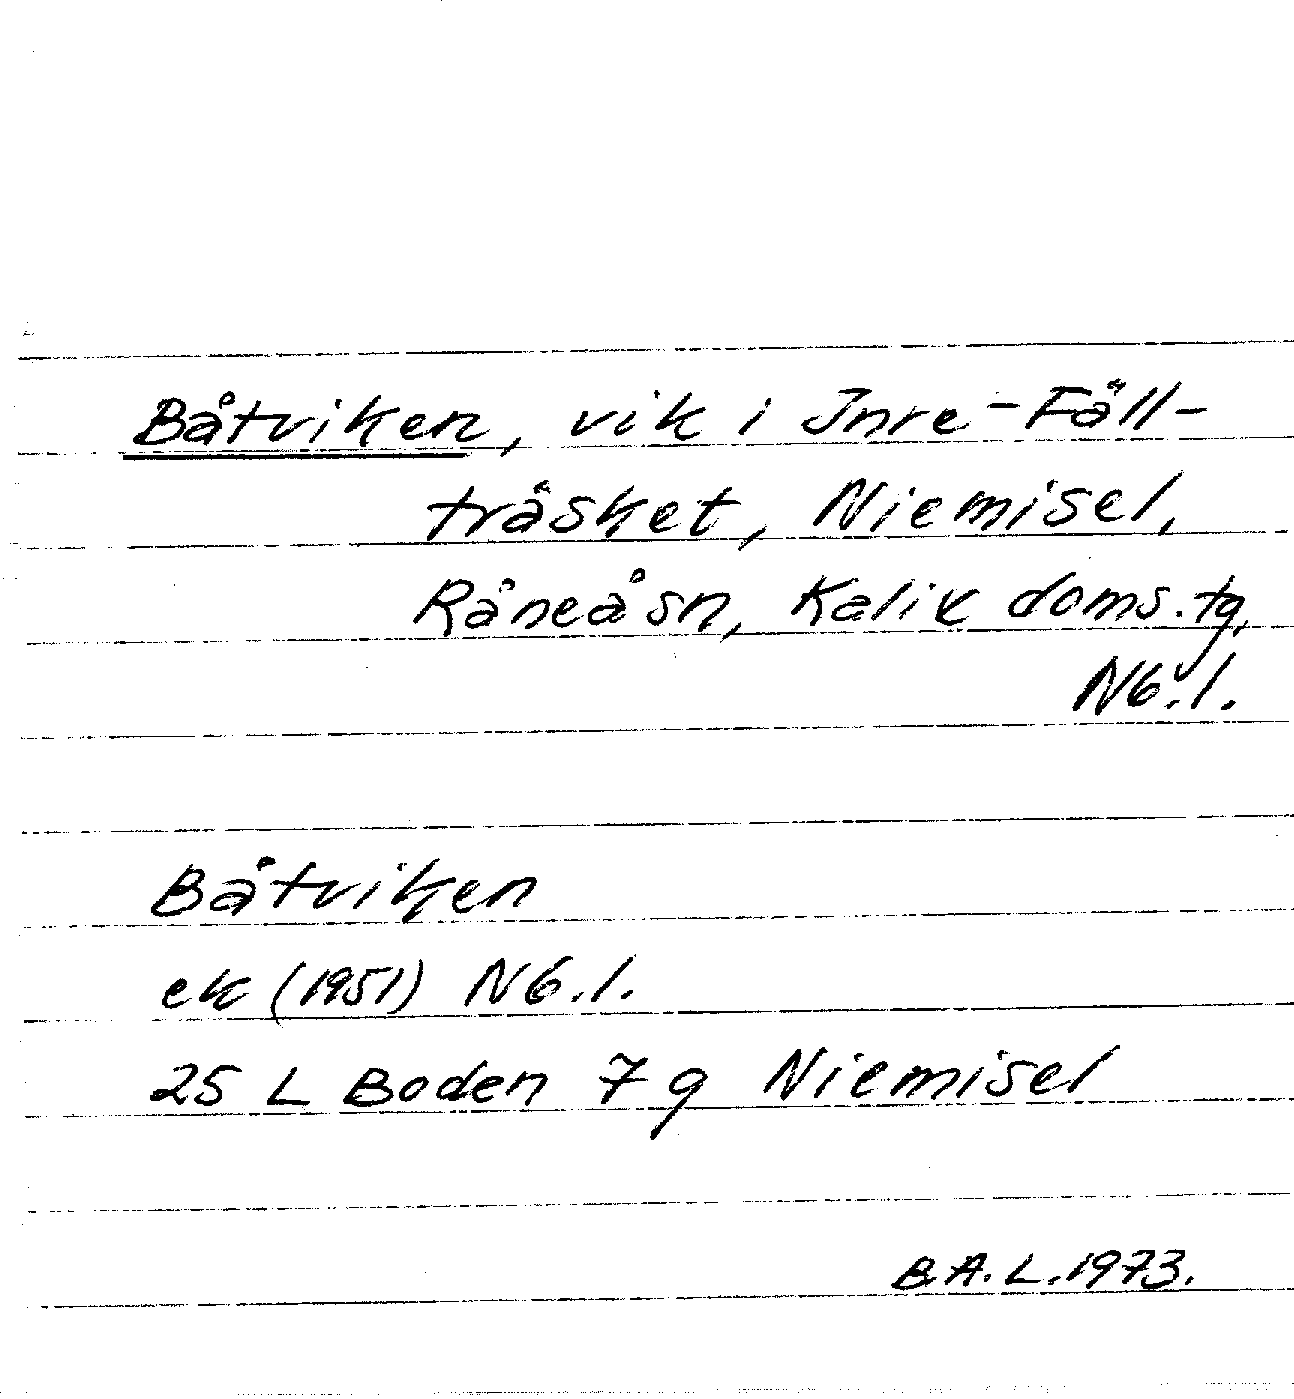 Båtviken, vik i Inre-Fäll-
träsket, Niemisel,
Råneå sn, Kalix doms.tg,
Nb.l.
Båtviken
ek (1951) Nb.l.
25 L Boden 7 g Niemisel
B.A.L.1973.